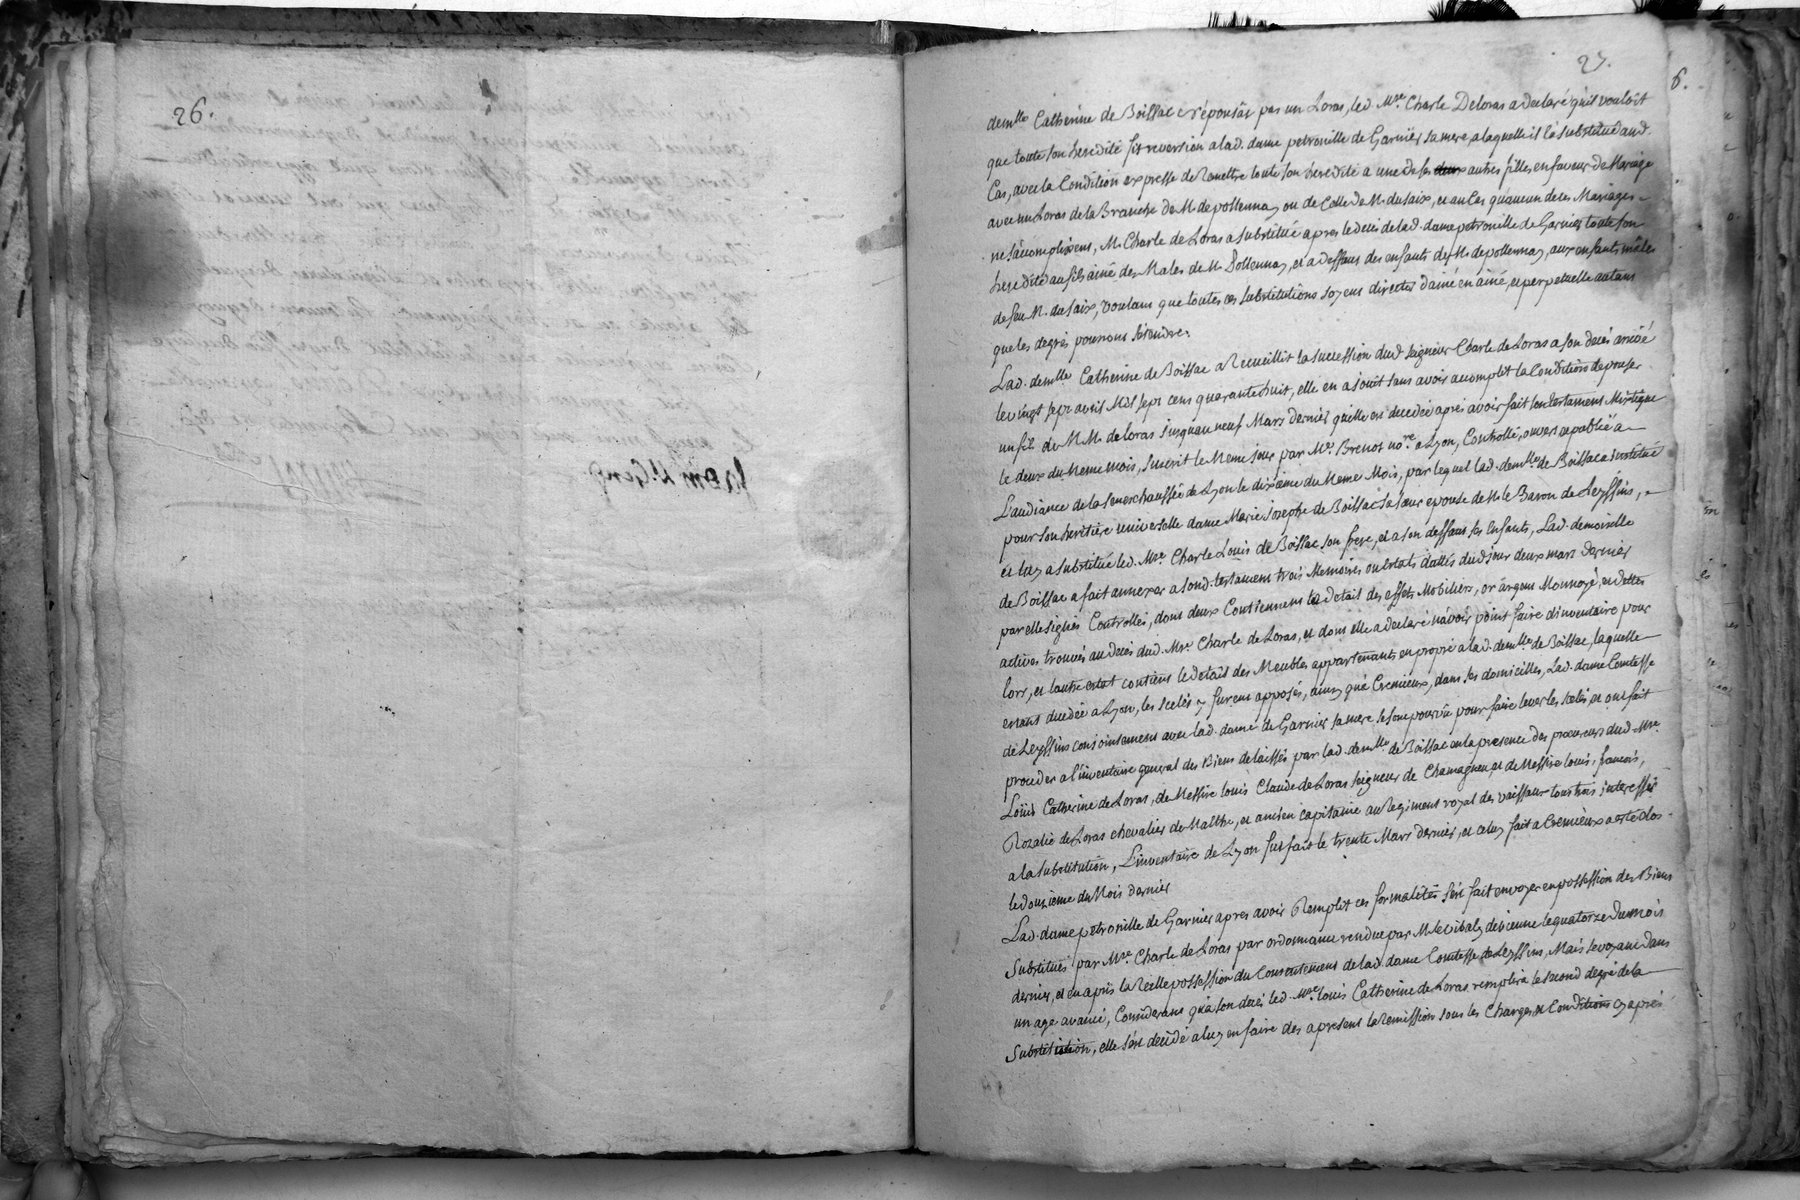 26.
27.
6.
demlle Catherine de Boissac n'épousât pas un Loras, led. Mre. Charle Deloras a declaré qu'il vouloit
que toute son heredité fit reversion a lad. dame petronille de Garnier sa mere a laquelle il l'a substitué aud.
Cas, avec la Condition expresse de Remettre toute son heredité a une de ses deux autres filles en faveur de Mariage
avec un Loras de la Branche de M. de pollenna, ou de Celle de M. du saix, et au Cas qu'aucun de ces Mariages
ne s'accomplissent, M. Charle de Loras a substitué apres le decés de lad. dame petronille de Garnier toute son
heredité au fils ainé des Males de M. Dollenna, et a deffaut des enfants de M. de pollenna, aux enfants mâles
de feu M. du saix, Voulant que toutes ces substitutions soyent directes d'ainé en ainé, et perpetuelle autant
que les degrés pourront s'etendre.
Lad. demlle Catherine de Boissac a Recueillit la succession dud. seigneur Charle de Loras a son decés arrivé
le vingt sept avril Mil sept cent quarante huit, elle en a jouit sans avoir accomplit la Condition d'epouser
un fils de M M. de loras jusqu'au neuf Mars dernier qu'elle est decedée aprés avoir fait son testament Mistique
le deux du Meme mois, suscrit le Meme jour par Me. Brenot nore a Lyon, Controllé, ouvert et publié a
L'audiance de la Senechaussée de Lyon le dixieme du Meme Mois, par lequel lad. demlle de Boissac a institué
pour son heritiere universelle dame Marie Josephe de Boissac sa sœur epouse de M. le Baron de Leyssins,
et luy a substitué led. Mre. Charle Louis de Boissac son frere, et a son deffaut ses Enfants, Lad. demoiselle
de Boissac a fait annexer a sond. testament trois Memoires ou estats dattés dud. jour deux mars dernier
par elle signés Controllés, dont deux Contiennent le detail des effets Mobiliers, or argent Monnoyé, et dettes
actives trouvés au decés dud. Mre. Charle de Loras, et dont elle a declaré n'avoir point faire d'inventaire pour
lors, et l'autre estat contient le detail des Meubles appartenants en propre a lad. demlle de Boissac, laquelle
etant decedée a Lyon, les scelés y furent apposés, ainsy qu'a Cremieux, dans ses domicilles, Lad. dame Comtesse
de Leyssins conjointement avec lad. dame de Garnier sa mere se sont pourvû pour faire lever les scelés et ont fait
proceder a l'inventaire general des Biens delaissés par lad. demlle de Boissac en la presence des procureurs dud. Mre.
Loüis Catherine de Loras, de Messire louis Claude de Loras seigneur de Chamagneu, et de Messire louis, francois,
Rozalie de Loras chevalier de Malthe, et ancien capitaine au Regiment royal des vaisseaux tous trois interessés
a la substitution, L'inventaire de Lyon fut fait le trente Mars dernier, et celuy fait a Cremieux a esté clos
le douzieme du Mois dernier
Lad. dame petronille de Garnier apres avoir Remplit ces formalités s'est fait envoyer en possession des Biens
substitués par Mre. Charle de Loras par ordonnance rendue par M. le vibaly de vienne le quatorze du mois
dernier, et en a pris la Reelle possession du Consentement de lad. dame Comtesse de Leyssins, Mais se voyant dans
un age avancé, Considerant qu'a son decés led. Mre. louis Catherine de Loras remplira le second degré de la
Substitution, elle s'est decidé a luy en faire des a present la Remission sous les Charges et Conditions cy après